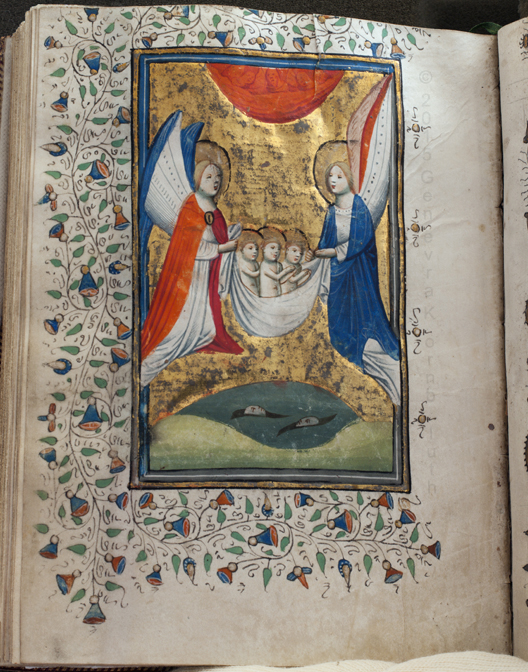 © Genevra Kornbluth